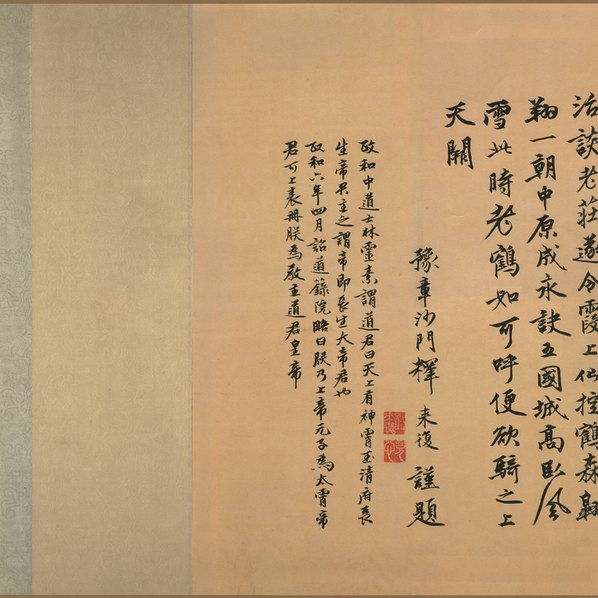 治談老莊遂令霞上仙控鶴森翱
翔一朝中原成永訣五國城高臥風
雪此時老鶴如可呼便欲騎之上
天關
豫章沙門釋来復謹題
政和中道士林靈素謂道君曰天上有神霄玉清府長
生帝君主之謂帝即長生大帝君也
政和六年四月詔道籙院略曰朕乃上帝元子為太霄帝
君可上表冊朕為教主道君皇帝